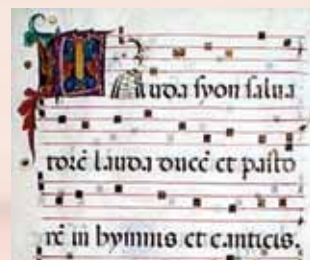 Lauda syon salua
torē lauda ducē et pasto
rē in hymnis et canticis.